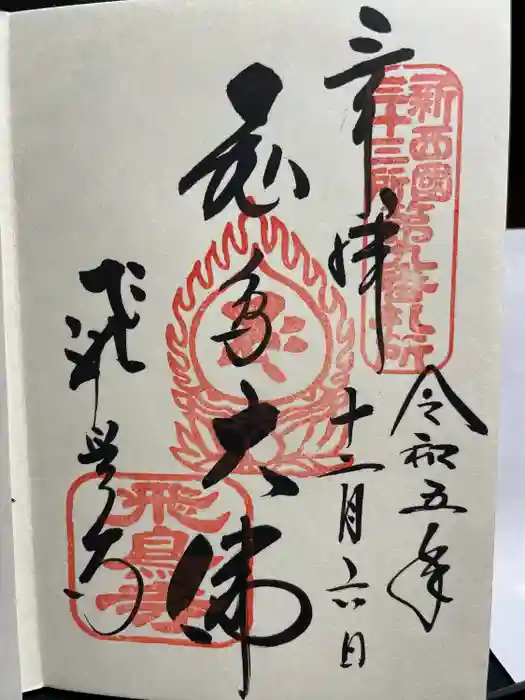 新西國
三十三所第九番札所
奉拝
令和五年
十二月六日
飛鳥大佛
飛鳥寺
飛鳥寺